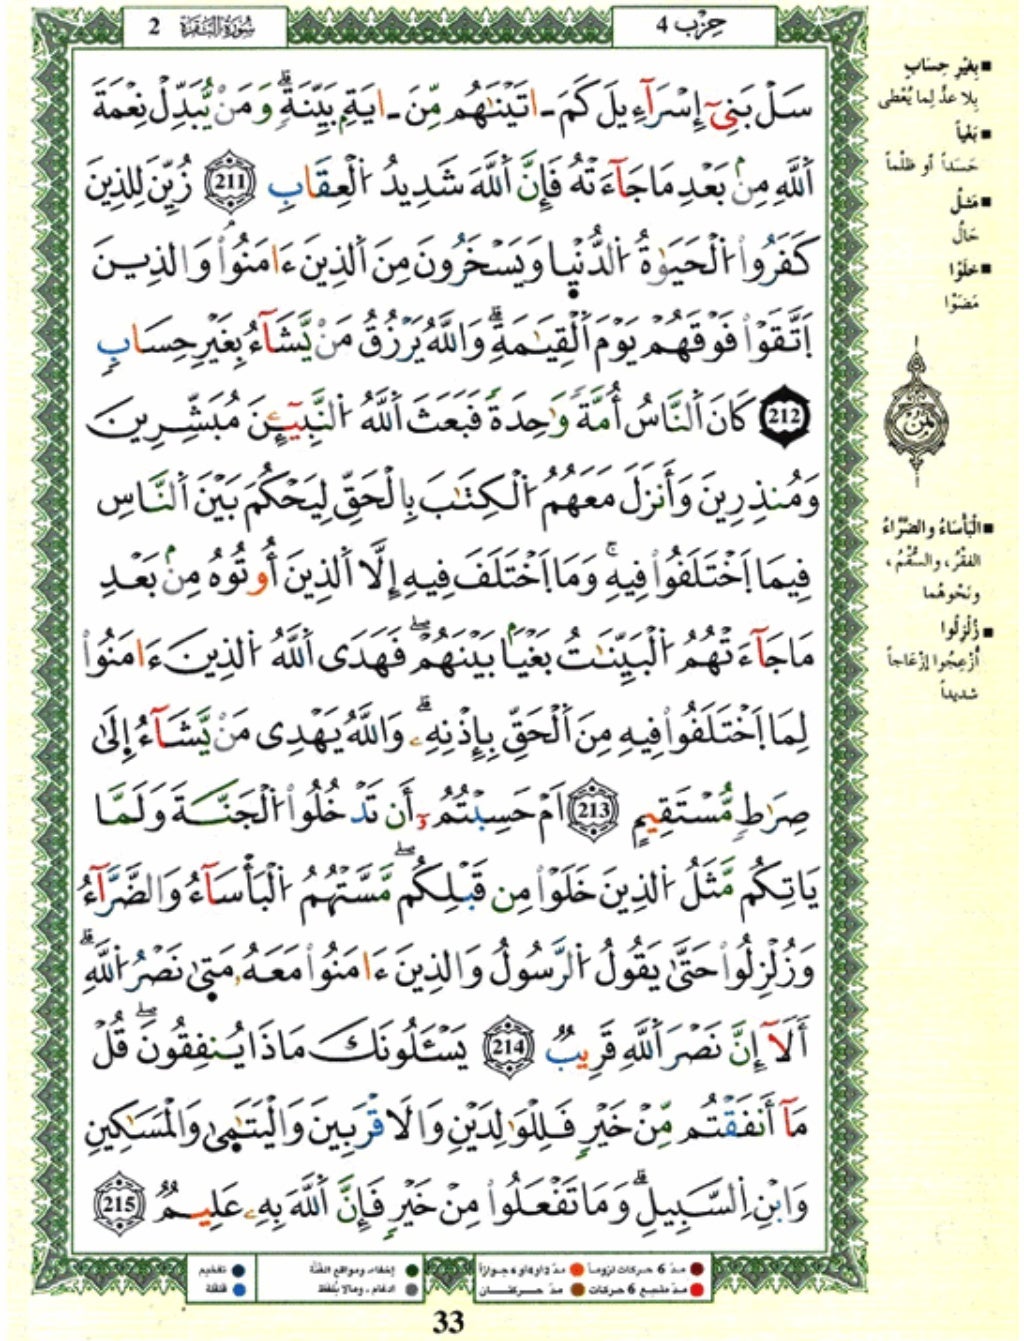 سُورَةُ الْبَقَرَة 2
حِزْب 4
سَلْ بَنِيٓ إِسْرَآءِيلَ كَمَ ـاتَيْنَٰهُم مِّنَ ـايَةِۢ بَيِّنَةٖۗ وَمَنْ يُّبَدِّلْ نِعْمَةَ
اَ۬للَّهِ مِنۢ بَعْدِ مَا جَآءَتْهُ فَإِنَّ اَ۬للَّهَ شَدِيدُ اُ۬لْعِقَابِ 211 زُيِّنَ لِلذِينَ
كَفَرُواْ اُ۬لْحَيَوٰةُ اُ۬لدُّنْيٜا وَيَسْخَرُونَ مِنَ اَ۬لذِينَ ءَامَنُواْۘ وَالذِينَ
اَ۪تَّقَوْاْ فَوْقَهُمْ يَوْمَ اَ۬لْقِيَٰمَةِۗ وَاللَّهُ يَرْزُقُ مَنْ يَّشَآءُ بِغَيْرِ حِسَابٖ
212 كَانَ اَ۬لنَّاسُ أُمَّةٗ وَٰحِدَةٗ فَبَعَثَ اَ۬للَّهُ اُ۬لنَّبِيٓـِٕۧنَ مُبَشِّرِينَ
وَمُنذِرِينَ وَأَنزَلَ مَعَهُمُ اُ۬لْكِتَٰبَ بِالْحَقِّ لِيَحْكُمَ بَيْنَ اَ۬لنَّاسِ
فِيمَا اَ۪خْتَلَفُواْ فِيهِۚ وَمَا اَ۪خْتَلَفَ فِيهِ إِلَّا اَ۬لذِينَ أُوتُوهُ مِنۢ بَعْدِ
مَا جَآءَتْهُمُ اُ۬لْبَيِّنَٰتُ بَغْيَاۢ بَيْنَهُمْۖ فَهَدَى اَ۬للَّهُ اُ۬لذِينَ ءَامَنُواْ
لِمَا اَ۪خْتَلَفُواْ فِيهِ مِنَ اَ۬لْحَقِّ بِإِذْنِهِۦۗ وَاللَّهُ يَهْدِي مَنْ يَّشَآءُ إِلَىٰ
صِرَٰطٖ مُّسْتَقِيمٍ 213 اَمْ حَسِبْتُمُۥٓ أَن تَدْخُلُواْ اُ۬لْجَنَّةَ وَلَمَّا
يَاتِكُم مَّثَلُ اُ۬لذِينَ خَلَوْاْ مِن قَبْلِكُمۖ مَّسَّتْهُمُ اُ۬لْبَأْسَآءُ وَالضَّرَّآءُ
وَزُلْزِلُواْ حَتَّىٰ يَقُولُ اُ۬لرَّسُولُ وَالذِينَ ءَامَنُواْ مَعَهُۥ مَتٜىٰ نَصْرُ اُ۬للَّهِۗ
أَلَآ إِنَّ نَصْرَ اَ۬للَّهِ قَرِيبٞ 214 يَسْـَٔلُونَكَ مَاذَا يُنفِقُونَۖ قُلْ
مَآ أَنفَقْتُم مِّنْ خَيْرٖ فَلِلْوَٰلِدَيْنِ وَالَاقْرَبِينَ وَالْيَتَٰمٜىٰ وَالْمَسَٰكِينِ
وَابْنِ اِ۬لسَّبِيلِۗ وَمَا تَفْعَلُواْ مِنْ خَيْرٖ فَإِنَّ اَ۬للَّهَ بِهِۦ عَلِيمٞ 215
■ بِغَيْرِ حِسَابٍ
بِلا عَدٍّ لِما يُعْطى
■ بَغْياً
حَسَداً أو ظلْماً
■ مَثَلُ
حَالُ
■ خَلَوْا
مَضَوْا
ثمن
■ الْبَأْسَاءُ والضَّرَّاءُ
الفقْرُ، والسُّقْمُ،
ونَحْوهُما
■ زُلْزِلُوا
أُزْعِجُوا إزْعَاجاً
شديداً
مدّ 6 حركات لزوماً مدّ 2 أو 4 أو 6 جوازاً
مدّ مشبع 6 حركات مدّ حركتان
إخفاء، ومواقع الغُنَّة تفخيم
ادغام، ومالا يُلفَظ قلقلة
33